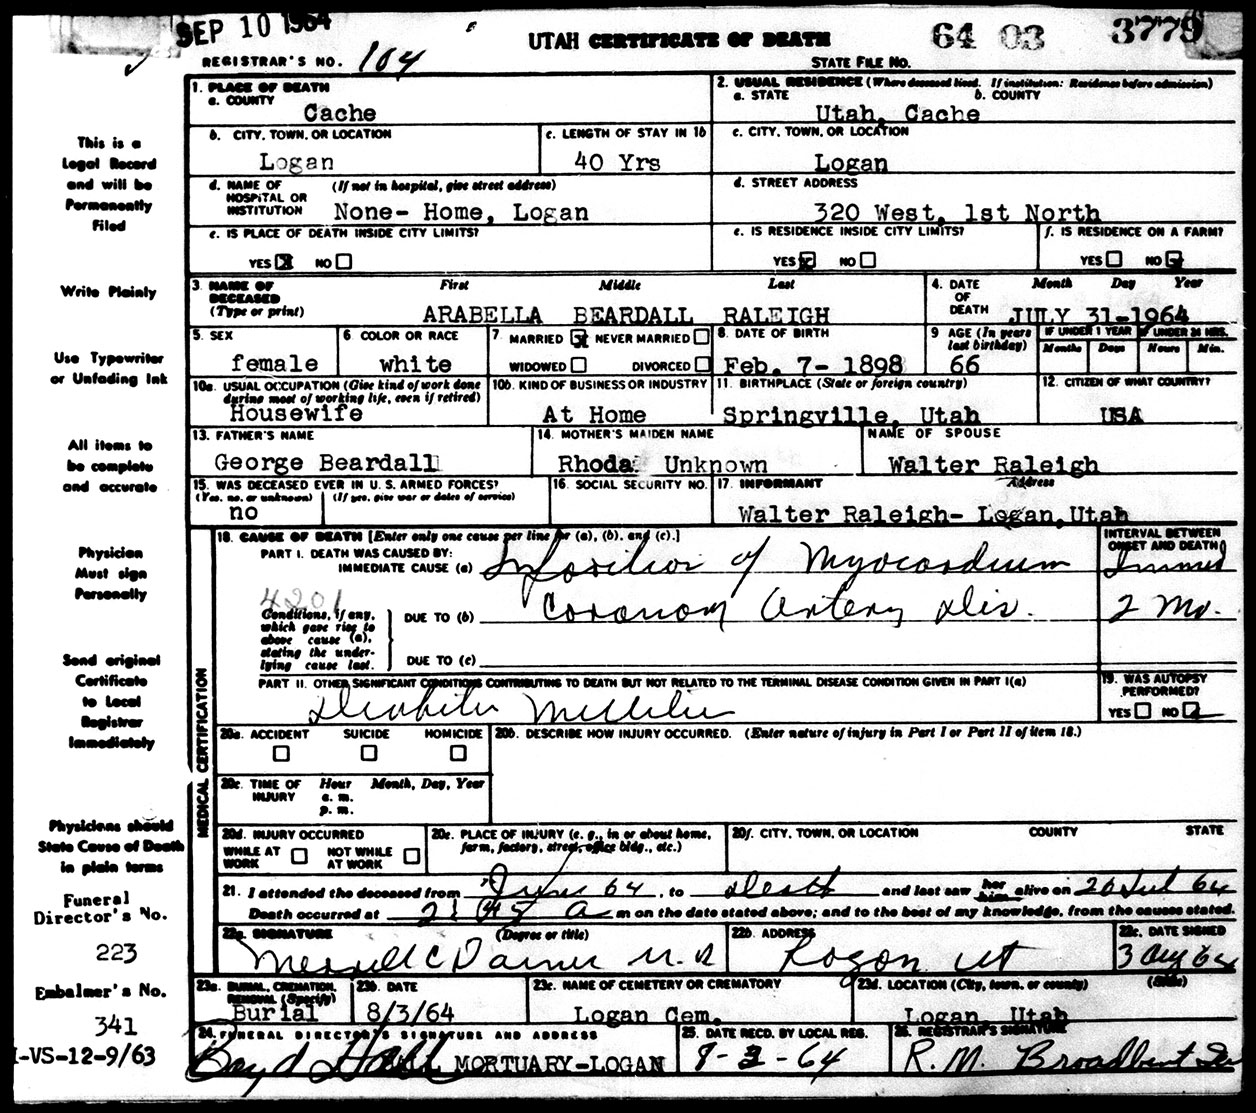 SEP 10 1964
UTAH CERTIFICATE OF DEATH 64 03 3779
REGISTRAR'S NO. 104 STATE FILE NO.
This is a
Legal Record
and will be
Permanently
Filed
Write Plainly
Use Typewriter
or Unfading Ink
All items to
be complete
and accurate
Physician
Must sign
Personally
Send original
Certificate
to Local
Registrar
Immediately
Physicians should
State Cause of Death
in plain terms
Funeral
Director's No.
223
Embalmer's No.
341
I-VS-12-9/63
1. PLACE OF DEATH
a. COUNTY
Cache
2. USUAL RESIDENCE (Where deceased lived. If institution: Residence before admission)
a. STATE b. COUNTY
Utah, Cache
b. CITY, TOWN, OR LOCATION
Logan
c. LENGTH OF STAY IN 1b
40 Yrs
c. CITY, TOWN, OR LOCATION
Logan
d. NAME OF HOSPITAL OR INSTITUTION (If not in hospital, give street address)
None- Home, Logan
d. STREET ADDRESS
320 West, 1st North
e. IS PLACE OF DEATH INSIDE CITY LIMITS?
YES X NO
e. IS RESIDENCE INSIDE CITY LIMITS?
YES X NO
f. IS RESIDENCE ON A FARM?
YES NO X
3. NAME OF DECEASED (Type or print) First Middle Last
ARABELLA BEARDALL RALEIGH
4. DATE OF DEATH Month Day Year
JULY 31-1964
5. SEX
female
6. COLOR OR RACE
white
7. MARRIED X NEVER MARRIED
WIDOWED DIVORCED
8. DATE OF BIRTH
Feb. 7- 1898
9 AGE (In years last birthday)
66
IF UNDER 1 YEAR UNDER 24 HRS.
Months Days Hours Min.
10a. USUAL OCCUPATION (Give kind of work done during most of working life, even if retired)
Housewife
10b. KIND OF BUSINESS OR INDUSTRY
At Home
11. BIRTHPLACE (State or foreign country)
Springville, Utah
12. CITIZEN OF WHAT COUNTRY?
USA
13. FATHER'S NAME
George Beardall
14. MOTHER'S MAIDEN NAME
Rhoda Unknown
NAME OF SPOUSE
Walter Raleigh
15. WAS DECEASED EVER IN U. S. ARMED FORCES?
(Yes, no, or unknown) (If yes, give war or dates of service)
no
16. SOCIAL SECURITY NO.
17. INFORMANT Address
Walter Raleigh- Logan, Utah
MEDICAL CERTIFICATION
18. CAUSE OF DEATH [Enter only one cause per line for (a), (b), and (c).]
INTERVAL BETWEEN ONSET AND DEATH
PART I. DEATH WAS CAUSED BY:
IMMEDIATE CAUSE (a) Infarction of Myocardium Immed
4201
Conditions, if any, which gave rise to above cause (a), stating the underlying cause last.
DUE TO (b) Coronary Artery Dis. 2 Mo.
DUE TO (c)
PART II. OTHER SIGNIFICANT CONDITIONS CONTRIBUTING TO DEATH BUT NOT RELATED TO THE TERMINAL DISEASE CONDITION GIVEN IN PART I(a)
Diabetes Mellitus
19. WAS AUTOPSY PERFORMED?
YES NO
20a. ACCIDENT SUICIDE HOMICIDE
20b. DESCRIBE HOW INJURY OCCURRED. (Enter nature of injury in Part I or Part II of item 18.)
20c. TIME OF INJURY Hour Month, Day, Year
a. m.
p. m.
20d. INJURY OCCURRED
WHILE AT WORK NOT WHILE AT WORK
20e. PLACE OF INJURY (e. g., in or about home, farm, factory, street, office bldg., etc.)
20f. CITY, TOWN, OR LOCATION COUNTY STATE
21. I attended the deceased from June 64, to Death and last saw her him alive on 20 Jul 64
Death occurred at 2:45 A m on the date stated above; and to the best of my knowledge, from the causes stated.
22a. SIGNATURE (Degree or title)
Merrill C Daines M.D
22b. ADDRESS
Logan Ut
22c. DATE SIGNED
3 Aug 64
23a. BURIAL, CREMATION, REMOVAL (Specify)
Burial
23b. DATE
8/3/64
23c. NAME OF CEMETERY OR CREMATORY
Logan Cem.
23d. LOCATION (City, town, or county) (State)
Logan, Utah
24. FUNERAL DIRECTOR'S SIGNATURE AND ADDRESS
Boyd Hall HALL MORTUARY-LOGAN
25. DATE RECD. BY LOCAL REG.
8-3-64
26. REGISTRAR'S SIGNATURE
R. M. Broadbent